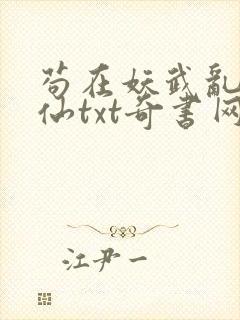 苟在妖武乱
仙txt奇书网
江尹一